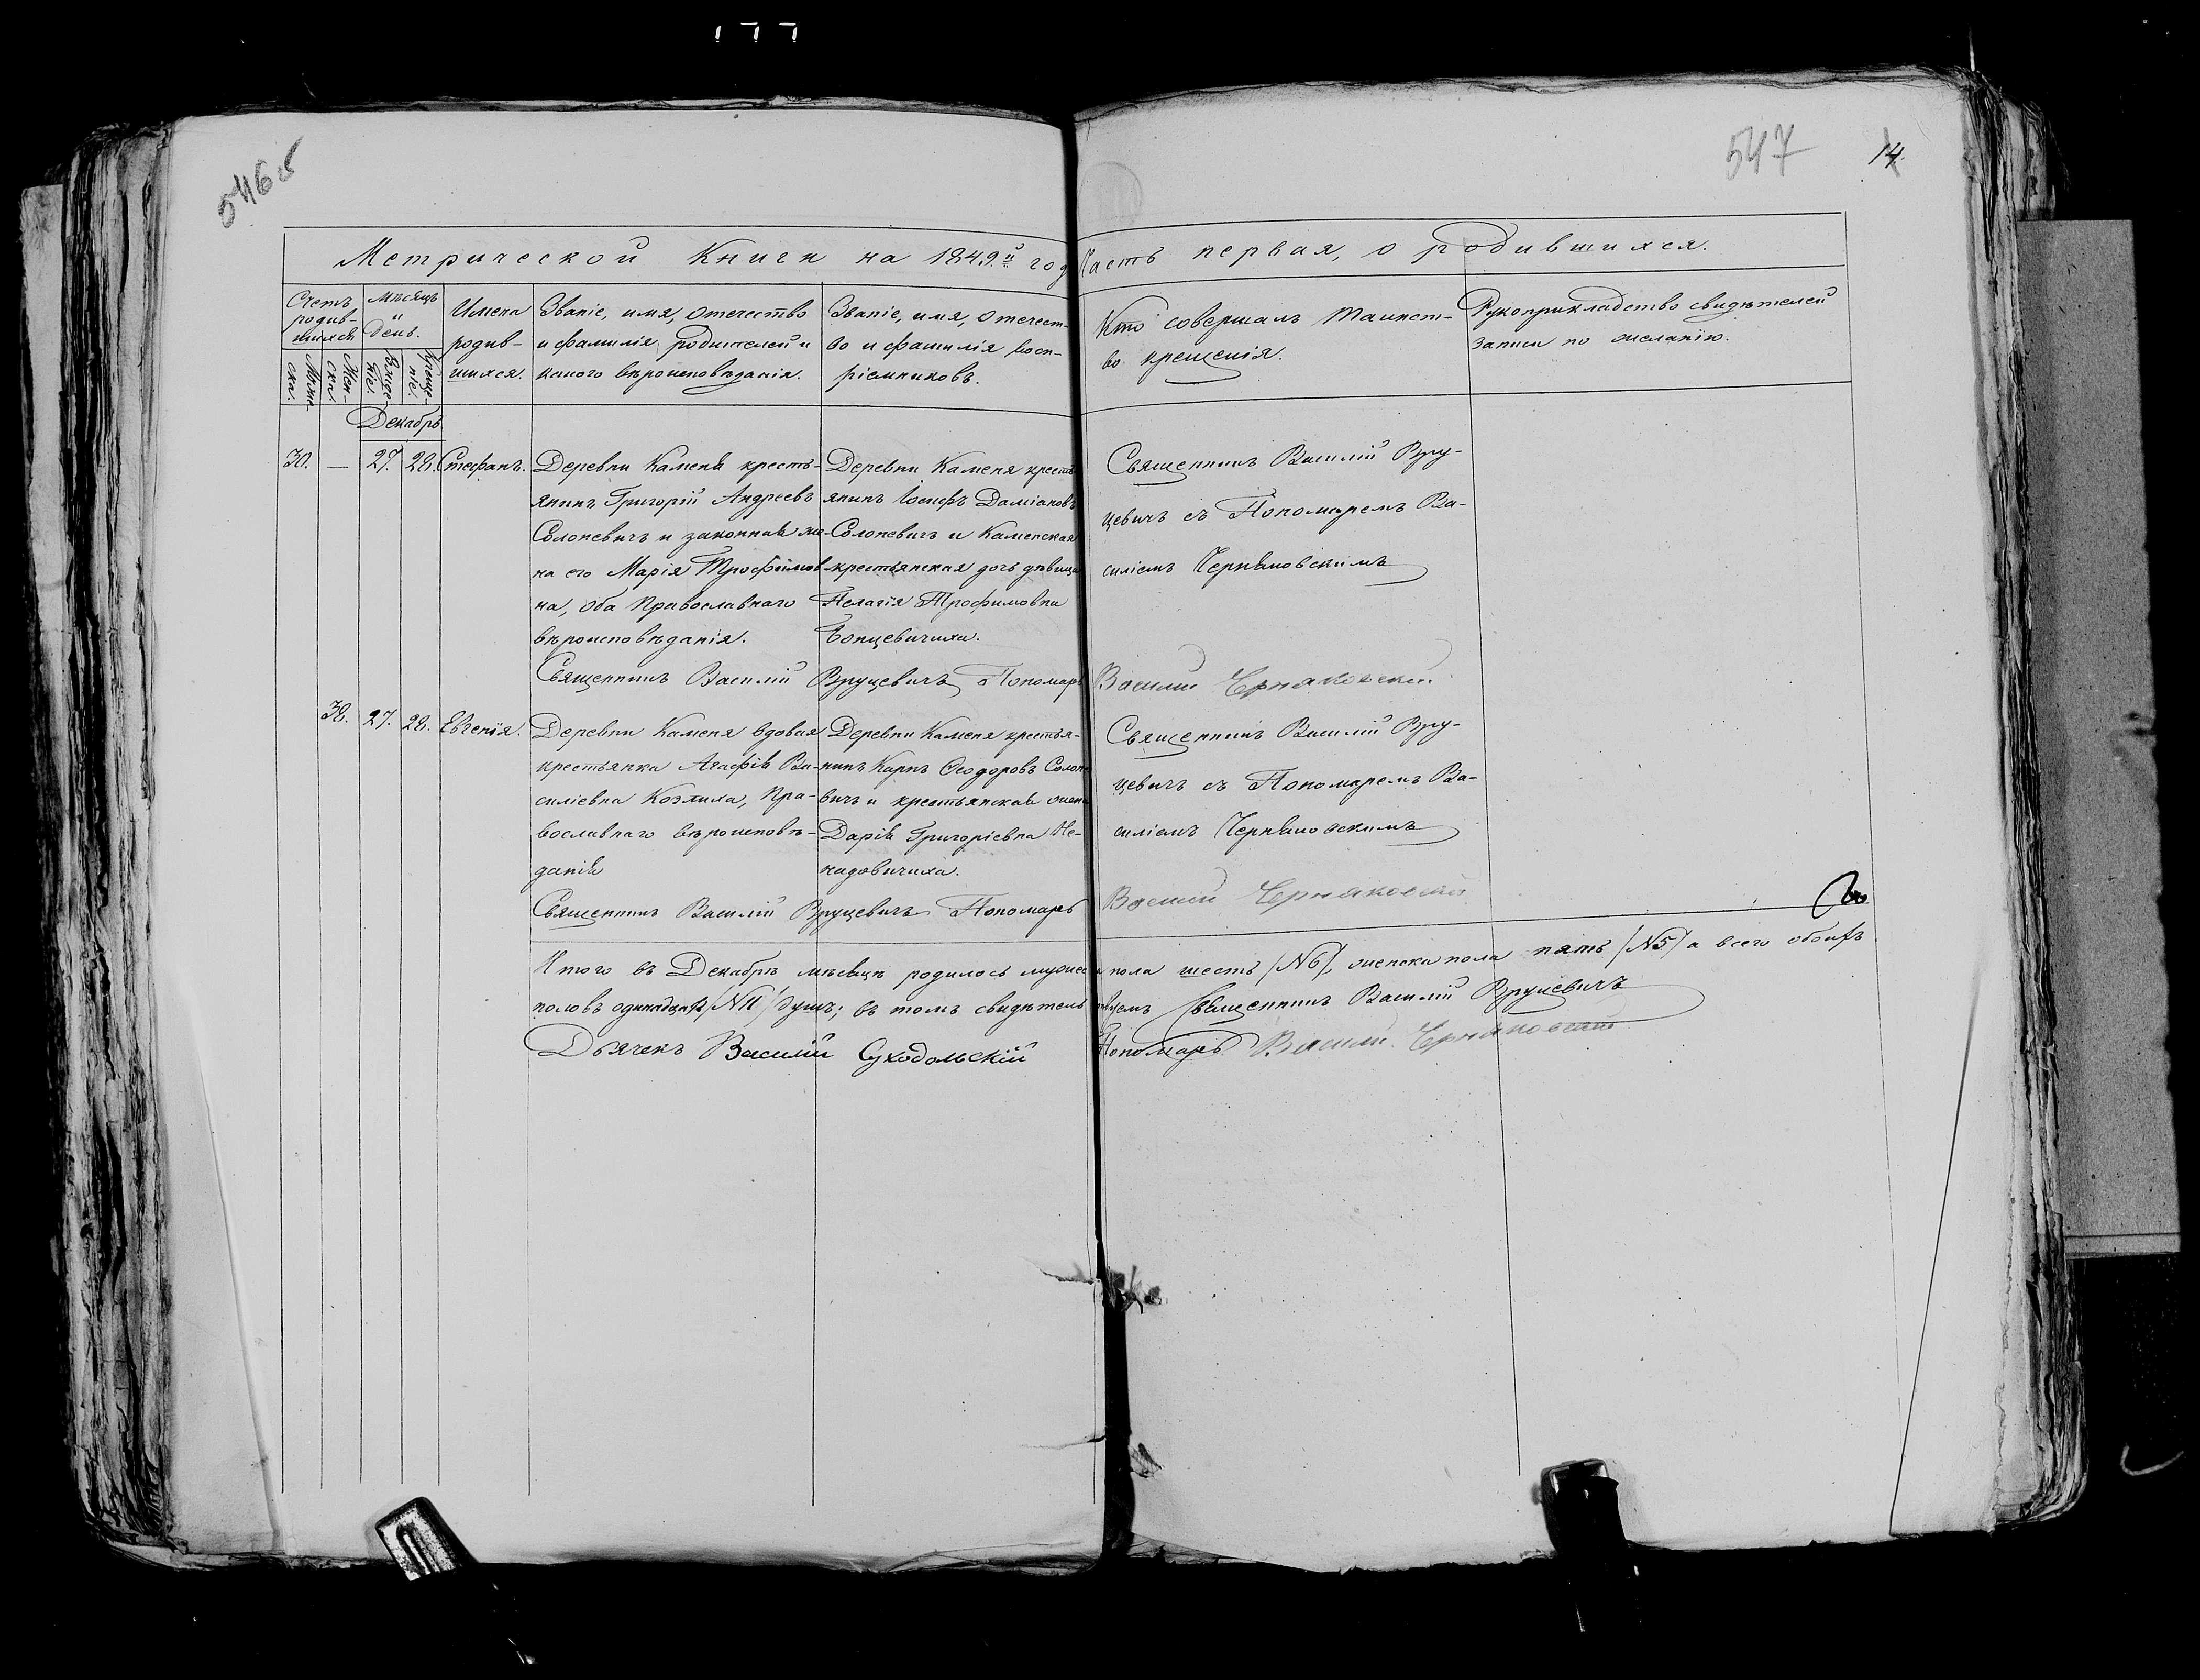 546 об
547
14
Метрической Книги на 1849й год Часть первая, о родившихся.
Счетъ родив-шихся
Муже-ска.
Жен-ска.
Мѣсяцъ и День.
Рожде-ніе.
Креще-ніе.
Имена родив-шихся.
Званіе, имя, отечество
и фамилія родителей и
какого вѣроисповѣданія.
Званіе, имя, отечест-
во и фамилія восп-
ріемниковъ.
Кто совершалъ таинст-
во крещенія.
Рукоприкладство свидѣтелей
записи по желанію.
Декабрь.
30. — 27. 28. Стефанъ.
Деревни Каменя кресть-
янинъ Григорій Андреевъ
Солоневичъ и законная же-
на его Марія Трофимов-
на, оба Православнаго
вѣроисповѣданія.
Деревни Каменя кресть
янинъ Іосифъ Даміановъ
Солоневичъ и Каменская
крестьянская дочь дѣвица
Пелагія Трофимовна
Концевичиха.
Священникъ Василій Вру-
цевичъ съ Пономаремъ Ва-
силіемъ Черняковскимъ
Священникъ Василій Вруцевичъ Пономарь Василий Черняковский
38. 27. 28. Евгенія.
Деревни Каменя вдовая
крестьянка Агафія Ва-
силіевна Козлиха, Пра-
вославнаго вѣроисповѣ-
данія
Деревни Каменя крестья-
нинъ Карпъ Ѳеодоровъ Солоне
вичъ и крестьянская жена
Дарія Григоріевна Не-
кадовичиха.
Священникъ Василій Вру-
цевичъ съ Пономаремъ Ва-
силіемъ Черняковскимъ
Священникъ Василій Вруцевичъ Пономарь Василий Черняковский
Итого въ Декабрѣ мѣсяцѣ родилось мужеска пола шесть /№6/, женска пола пять /№5/ а всего обоихъ
половъ одинадцать /№11/ душъ; въ томъ свидѣтельствуемъ Священникъ Василій Вруцевичъ
Дьячекъ Василій Суходольскій Пономарь Василий Черняковский